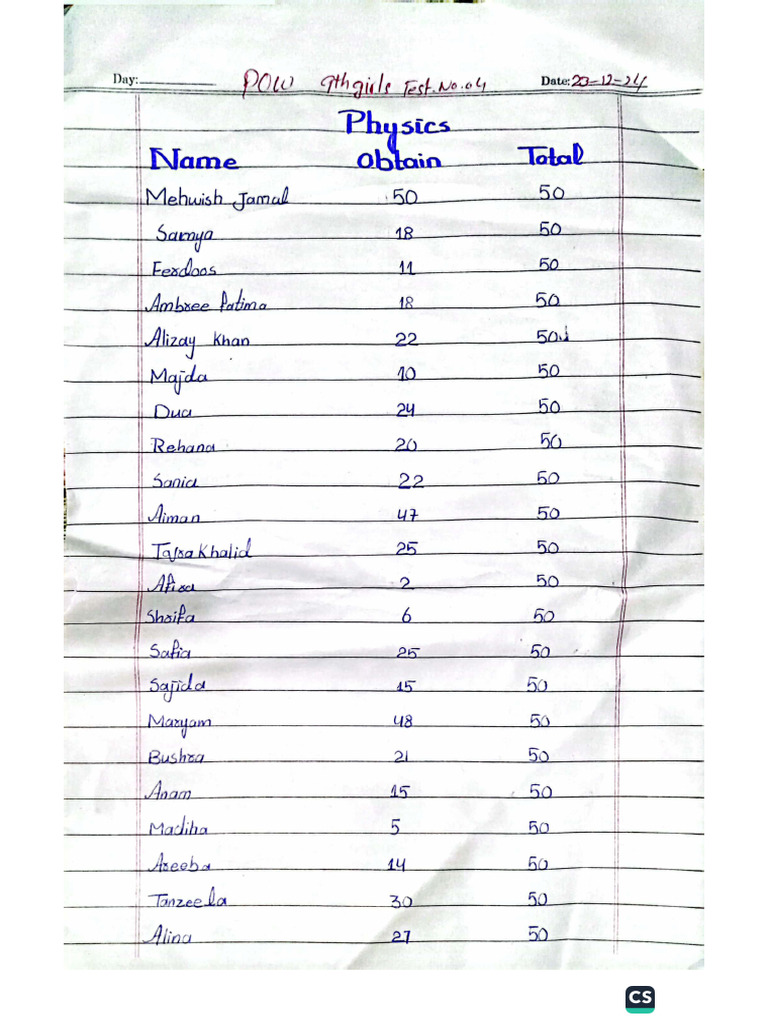 Day: POW 9th girls Test.No.04 Date: 23-12-24
Physics
Name obtain Total
Mehwish Jamal 50 50
Samya 18 50
Ferdoos 11 50
Ambree Fatima 18 50
Alizay Khan 22 50
Majda 10 50
Dua 24 50
Rehana 20 50
Sania 22 50
Aiman 47 50
Khalid 25 50
Afiza 2 50
Shrifa 6 50
Safia 25 50
Sajida 15 50
Maryam 48 50
Bushra 21 50
Anam 15 50
Madiha 5 50
Areeba 14 50
Tanzeela 30 50
Alina 27 50
CS